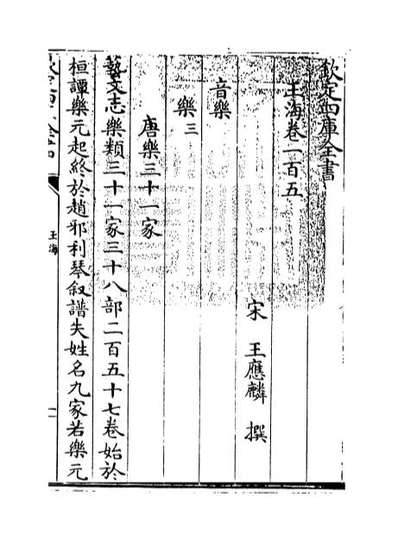 欽定四庫全書
玉海卷一百五
宋 王應麟 撰
音樂
樂三
唐樂三十一家
藝文志樂類三十一家三十八部二百五十七卷始於
桓譚樂元起終於趙邪利琴叙譜失姓名九家若樂元
玉海